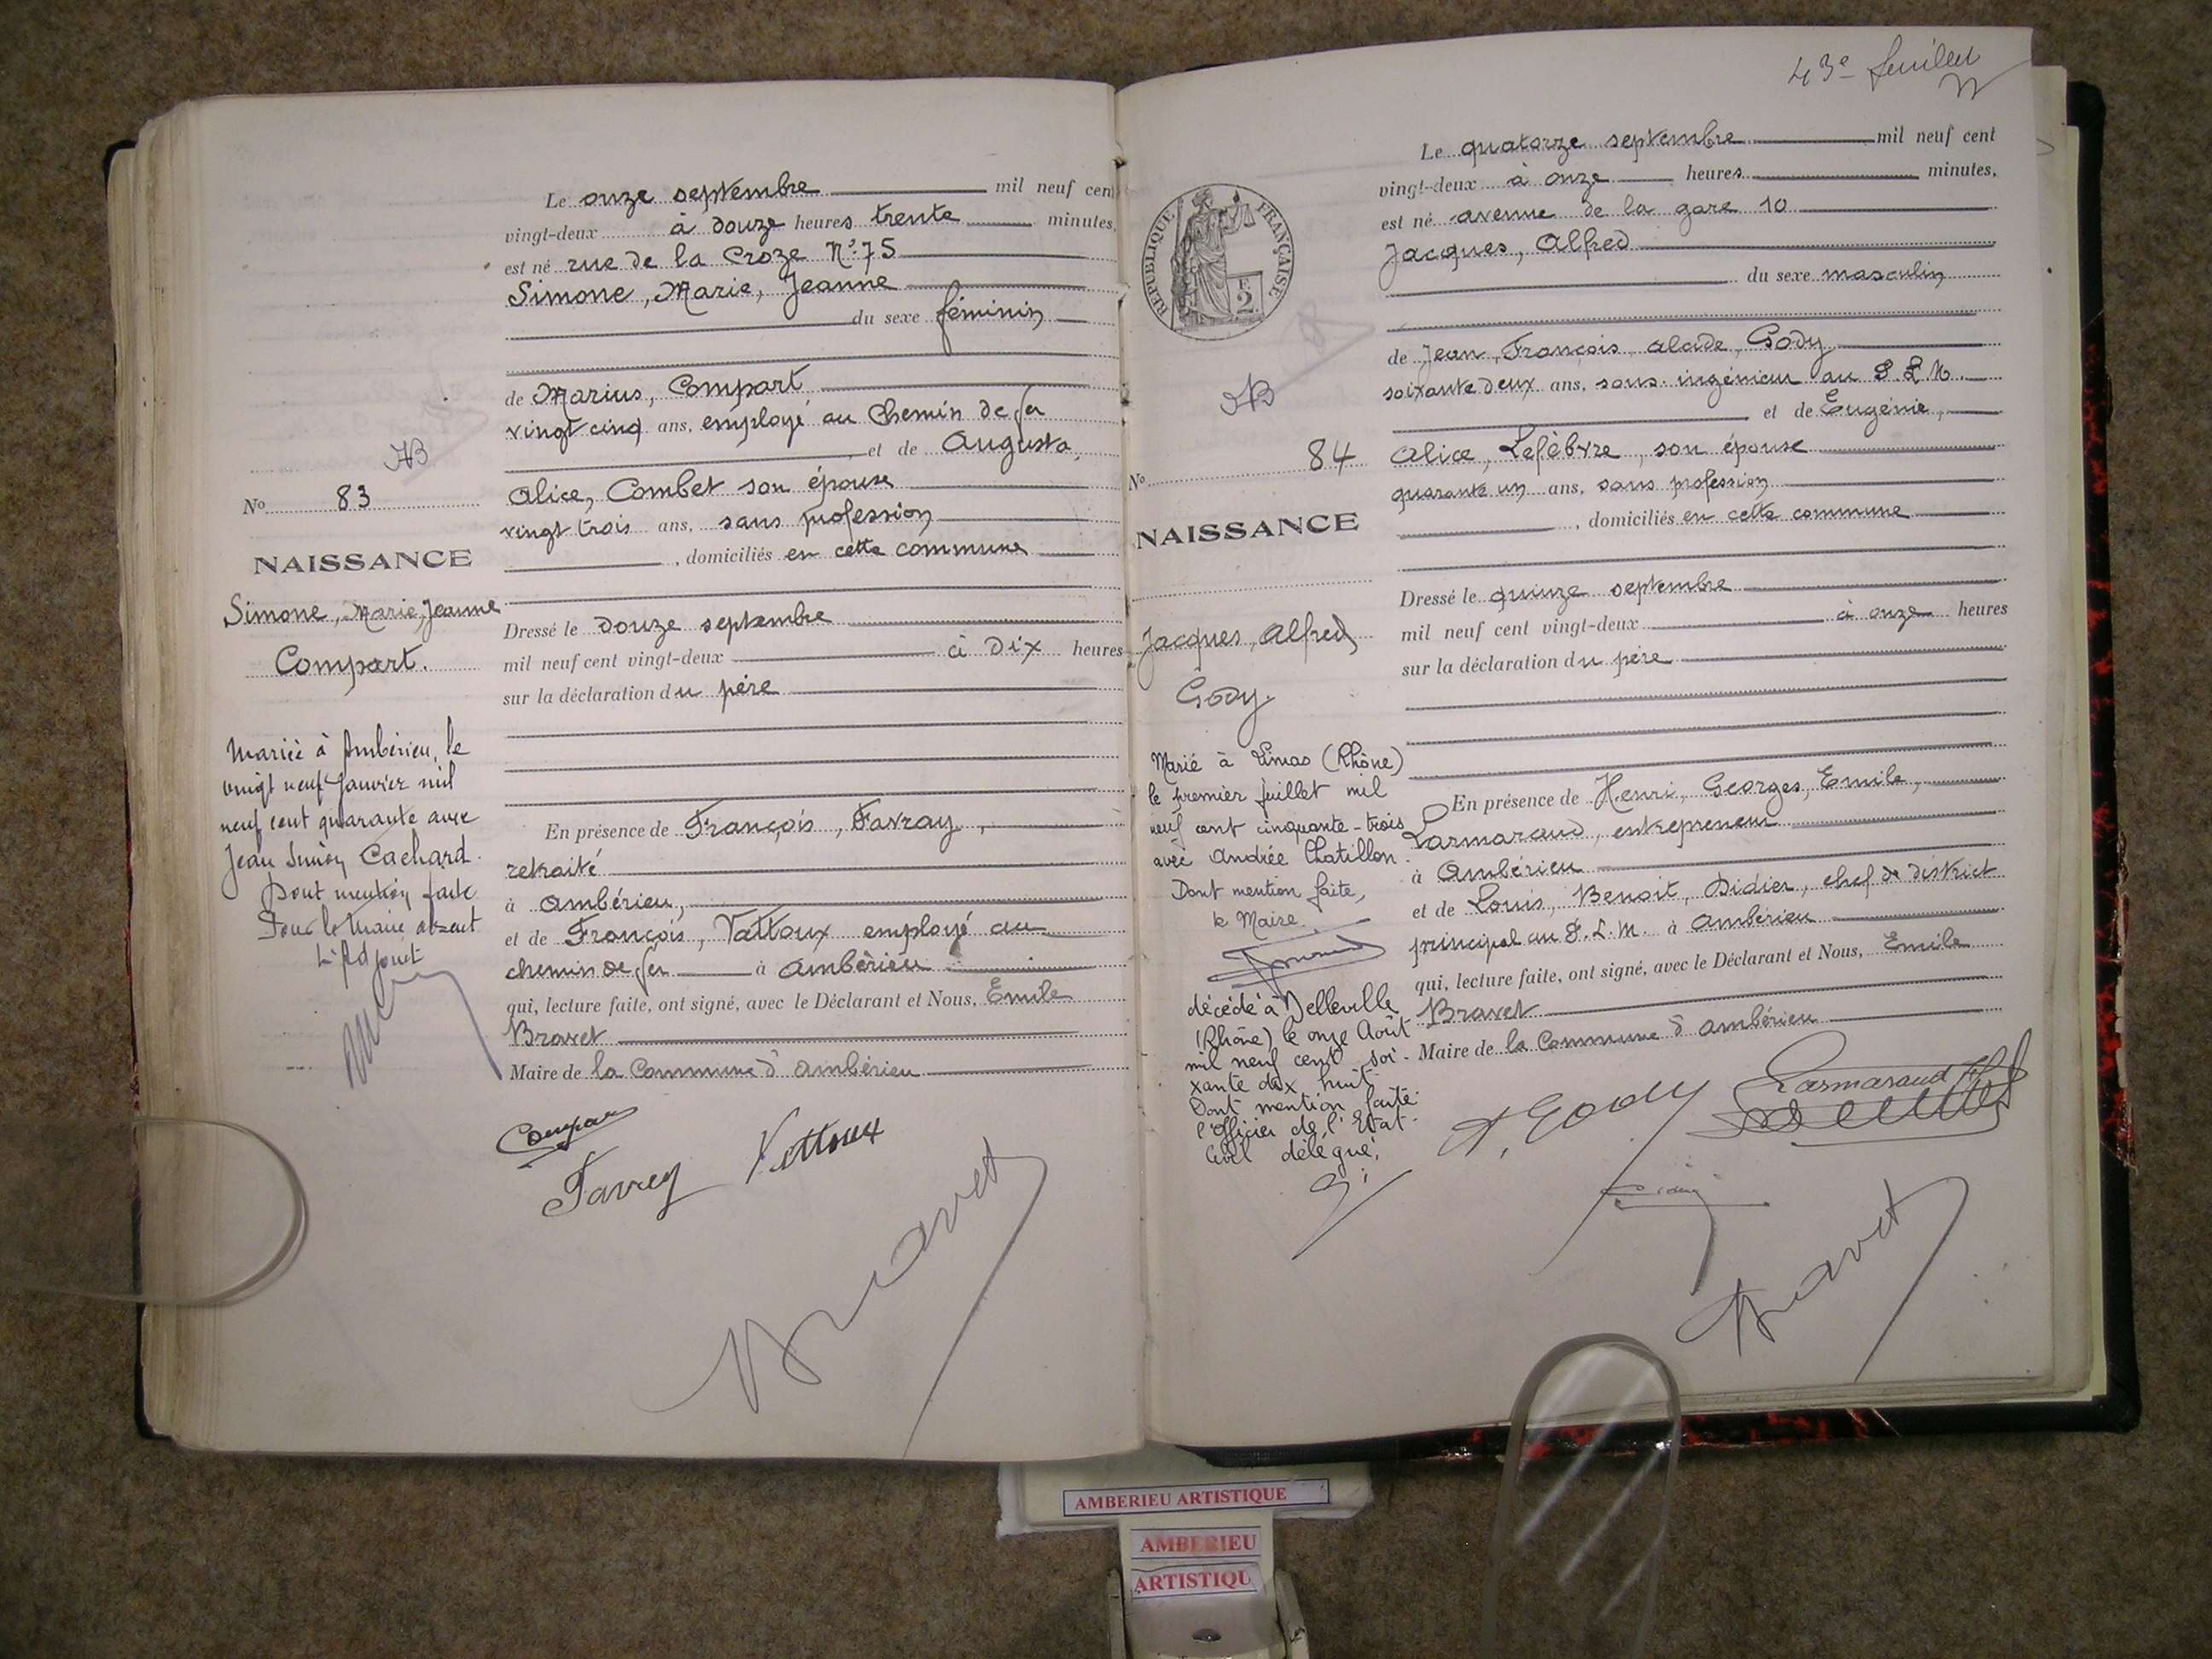 Le onze septembre mil neuf cent
vingt-deux à douze heures trente minutes,
est né rue de la Croze N° 75
Simone, Marie, Jeanne
du sexe féminin
de Marius, Compart
vingt cinq ans, employé au Chemin de fer
et de Augusta,
Alice, Combet son épouse
vingt trois ans, sans profession
, domiciliés en cette commune
Dressé le douze septembre
mil neuf cent vingt-deux à dix heures
sur la déclaration du père
En présence de François, Favray,
retraité
à Ambérieu,
et de François, Vattoux employé au
chemin de fer à Ambérieu
qui, lecture faite, ont signé, avec le Déclarant et Nous, Emile
Bravet
Maire de la Commune d'Ambérieu
Compart
Favrey Vattoux
Bravet
No 83
NAISSANCE
Simone, Marie, Jeanne
Compart.
Mariée à Ambérieu, le
vingt neuf Janvier mil
neuf cent quarante avec
Jean Cachard.
Dont mention faite
Pour le Maire absent
L'Adjoint
43e feuillet
Le quatorze septembre mil neuf cent
vingt-deux à onze heures minutes,
est né avenue de la gare 10
Jacques, Alfred
du sexe masculin
de Jean, François, Alcide, Gody
soixante deux ans, sous-ingénieur au P.L.M.
et de Eugénie,
Alice, Lefèbvre, son épouse
quarante un ans, sans profession
, domiciliés en cette commune
Dressé le quinze septembre
mil neuf cent vingt-deux à onze heures
sur la déclaration du père
En présence de Henri, Georges, Emile,
Larmaraud, entrepreneur
à Ambérieu
et de Louis, Benoit, Didier, chef de district
principal au P.L.M. à Ambérieu
qui, lecture faite, ont signé, avec le Déclarant et Nous, Emile
Bravet
Maire de la Commune d'Ambérieu
A. Gody Larmaraud
Bravet
REPUBLIQUE FRANÇAISE
F.
2
No 84
NAISSANCE
Jacques, Alfred
Gody.
Marié à Limas (Rhône)
le premier juillet mil
neuf cent cinquante-trois
avec Andrée Chatillon.
Dont mention faite,
le Maire.
décédé à Belleville
(Rhône) le onze Août
mil neuf cent soi-
xante dix huit
Dont mention faite
l'Officier de l'Etat-
Civil délégué,
AMBERIEU ARTISTIQUE
AMBERIEU
ARTISTIQU